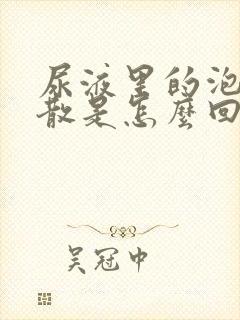 尿液里的泡
散是怎麽回
吴冠中